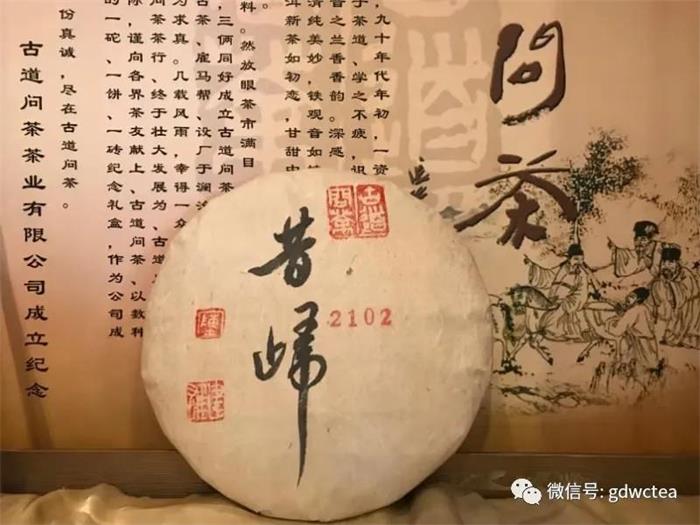 问茶
九十年代年初，一资
于茶道、学之不疲，
音之兰香音韵。深感
清纯美妙，铁观音如
洱新茶如初恋，甘甜中
料。然放眼茶市满目
三俩同好成立古道问茶
古茶、雇马帮、设厂于澜沧
为求真。几载风雨，幸得一众
问茶茶行、终于壮大发展为、古道
际，谨向各界茶友献上、古道问茶、以数料
的一砣、一饼、一砖纪念礼盒，作为公司成
份真诚，尽在古道问茶。
古道问茶茶业有限公司成立纪念
古道问茶
昔归
2102
微信号: gdwctea